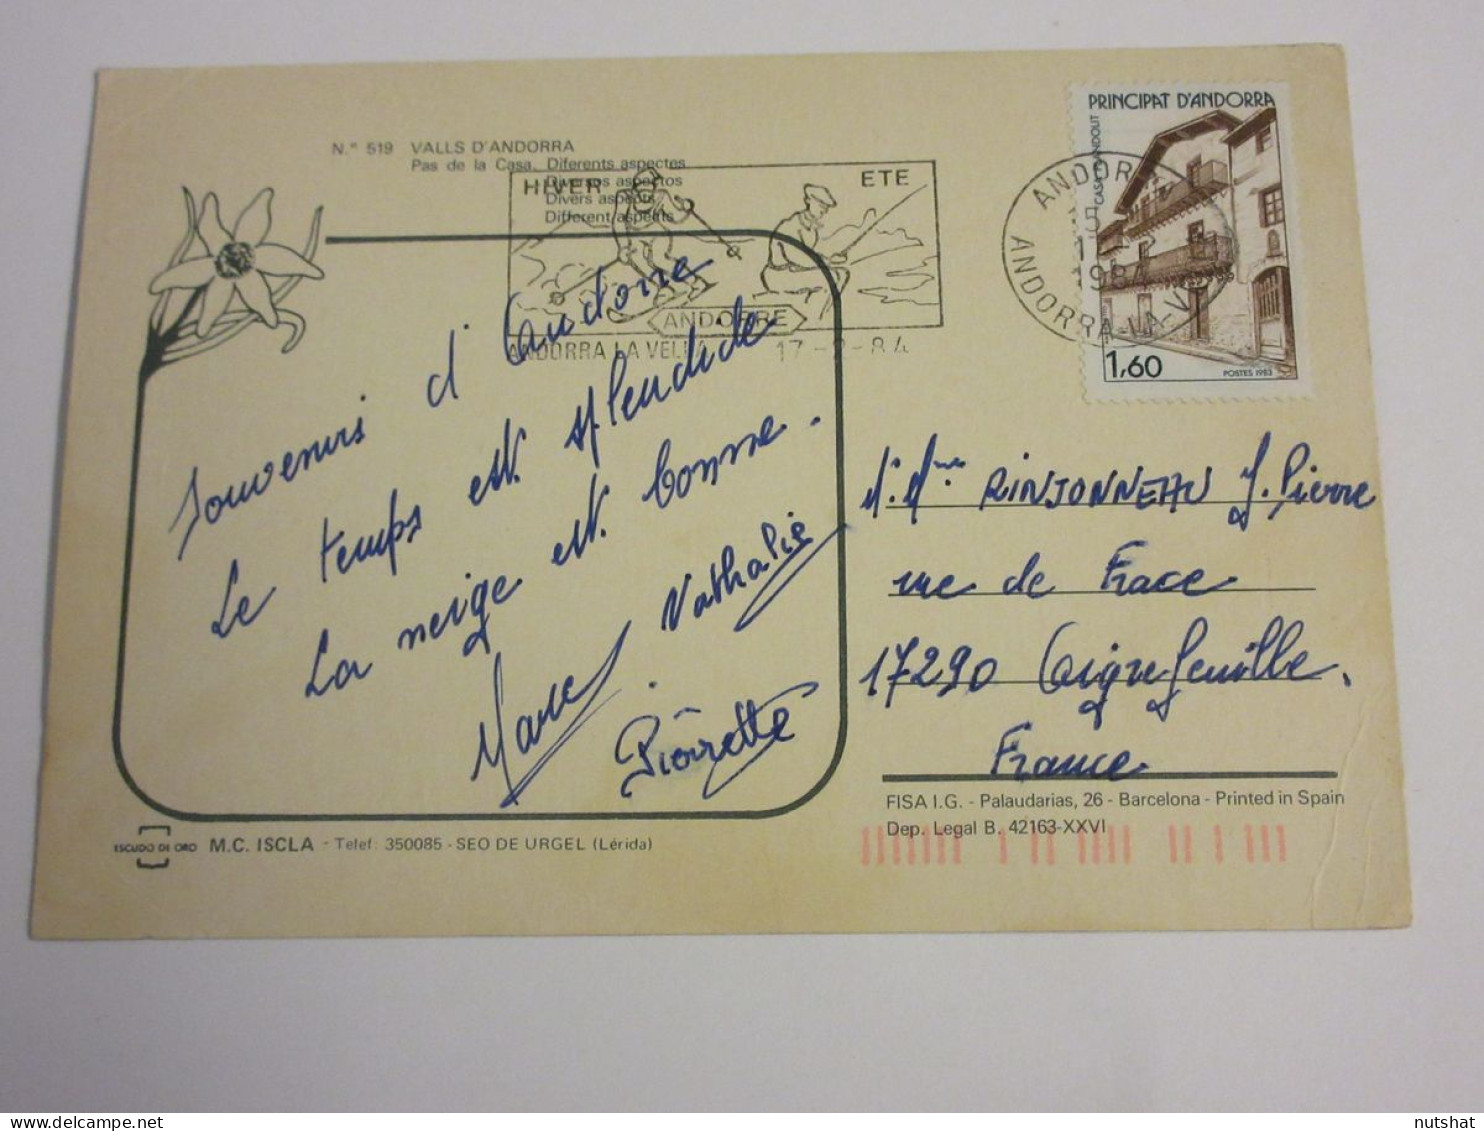 N.º 519 VALLS D'ANDORRA
Pas de la Casa. Diferents aspectes
Diversos aspectos
Divers aspects
Different aspects
HIVER
ETE
ANDORRE
ANDORRA LA VELLA 17-2-84
PRINCIPAT D'ANDORRA
CASA PLANDOLIT
1,60
POSTES 1983
ANDORRA
1984
ANDORRA-LA-V
Souvenirs d'Andorre
Le temps est splendide
La neige est bonne.
Nathalie
Pierrette
M. Mme RINJONNEAU J. Pierre
rue de Frace
17290 Aigrefeuille.
France
FISA I.G. - Palaudarias, 26 - Barcelona - Printed in Spain
Dep. Legal B. 42163-XXVI
ESCUDO DE ORO M.C. ISCLA - Telef. 350085 - SEO DE URGEL (Lérida)
nutshat